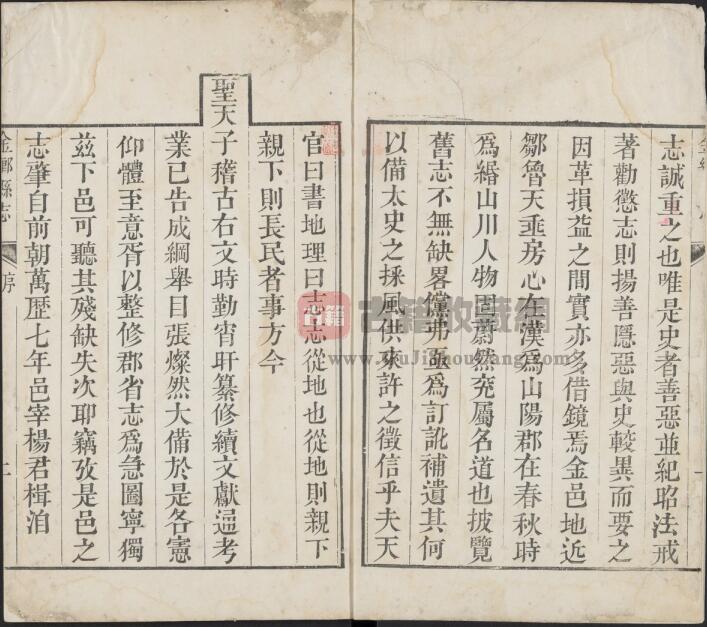 志誠重之也唯是史者善惡並紀昭法戒
著勸懲志則揚善隱惡與史較異而要之
因革損益之間實亦多借鏡焉金邑地近
鄒魯天垂房心在漢爲山陽郡在春秋時
爲緡山川人物固蔚然兖屬名道也披覽
舊志不無缺畧儻弗亟爲訂訛補遺其何
以備太史之採風供來許之徵信乎夫天
官曰書地理曰志志從地也從地則親下
親下則長民者事方今
聖天子稽古右文時勤宵旰纂修續文獻通考
業已告成綱舉目張燦然大備於是各憲
仰體至意胥以整修郡省志爲急圖寧獨
茲下邑可聽其殘缺失次耶竊攷是邑之
志肇自前朝萬歷七年邑宰楊君楫洎
金鄉縣志
序
二
古籍收藏網
www.GuJiShouCang.com